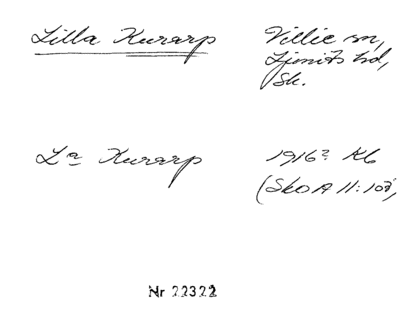 Lilla Kurarp Villie sn,
Ljunits hd,
Sk.
La Kurarp 1916? Kb
(SkOA 11:107,
Nr 22322